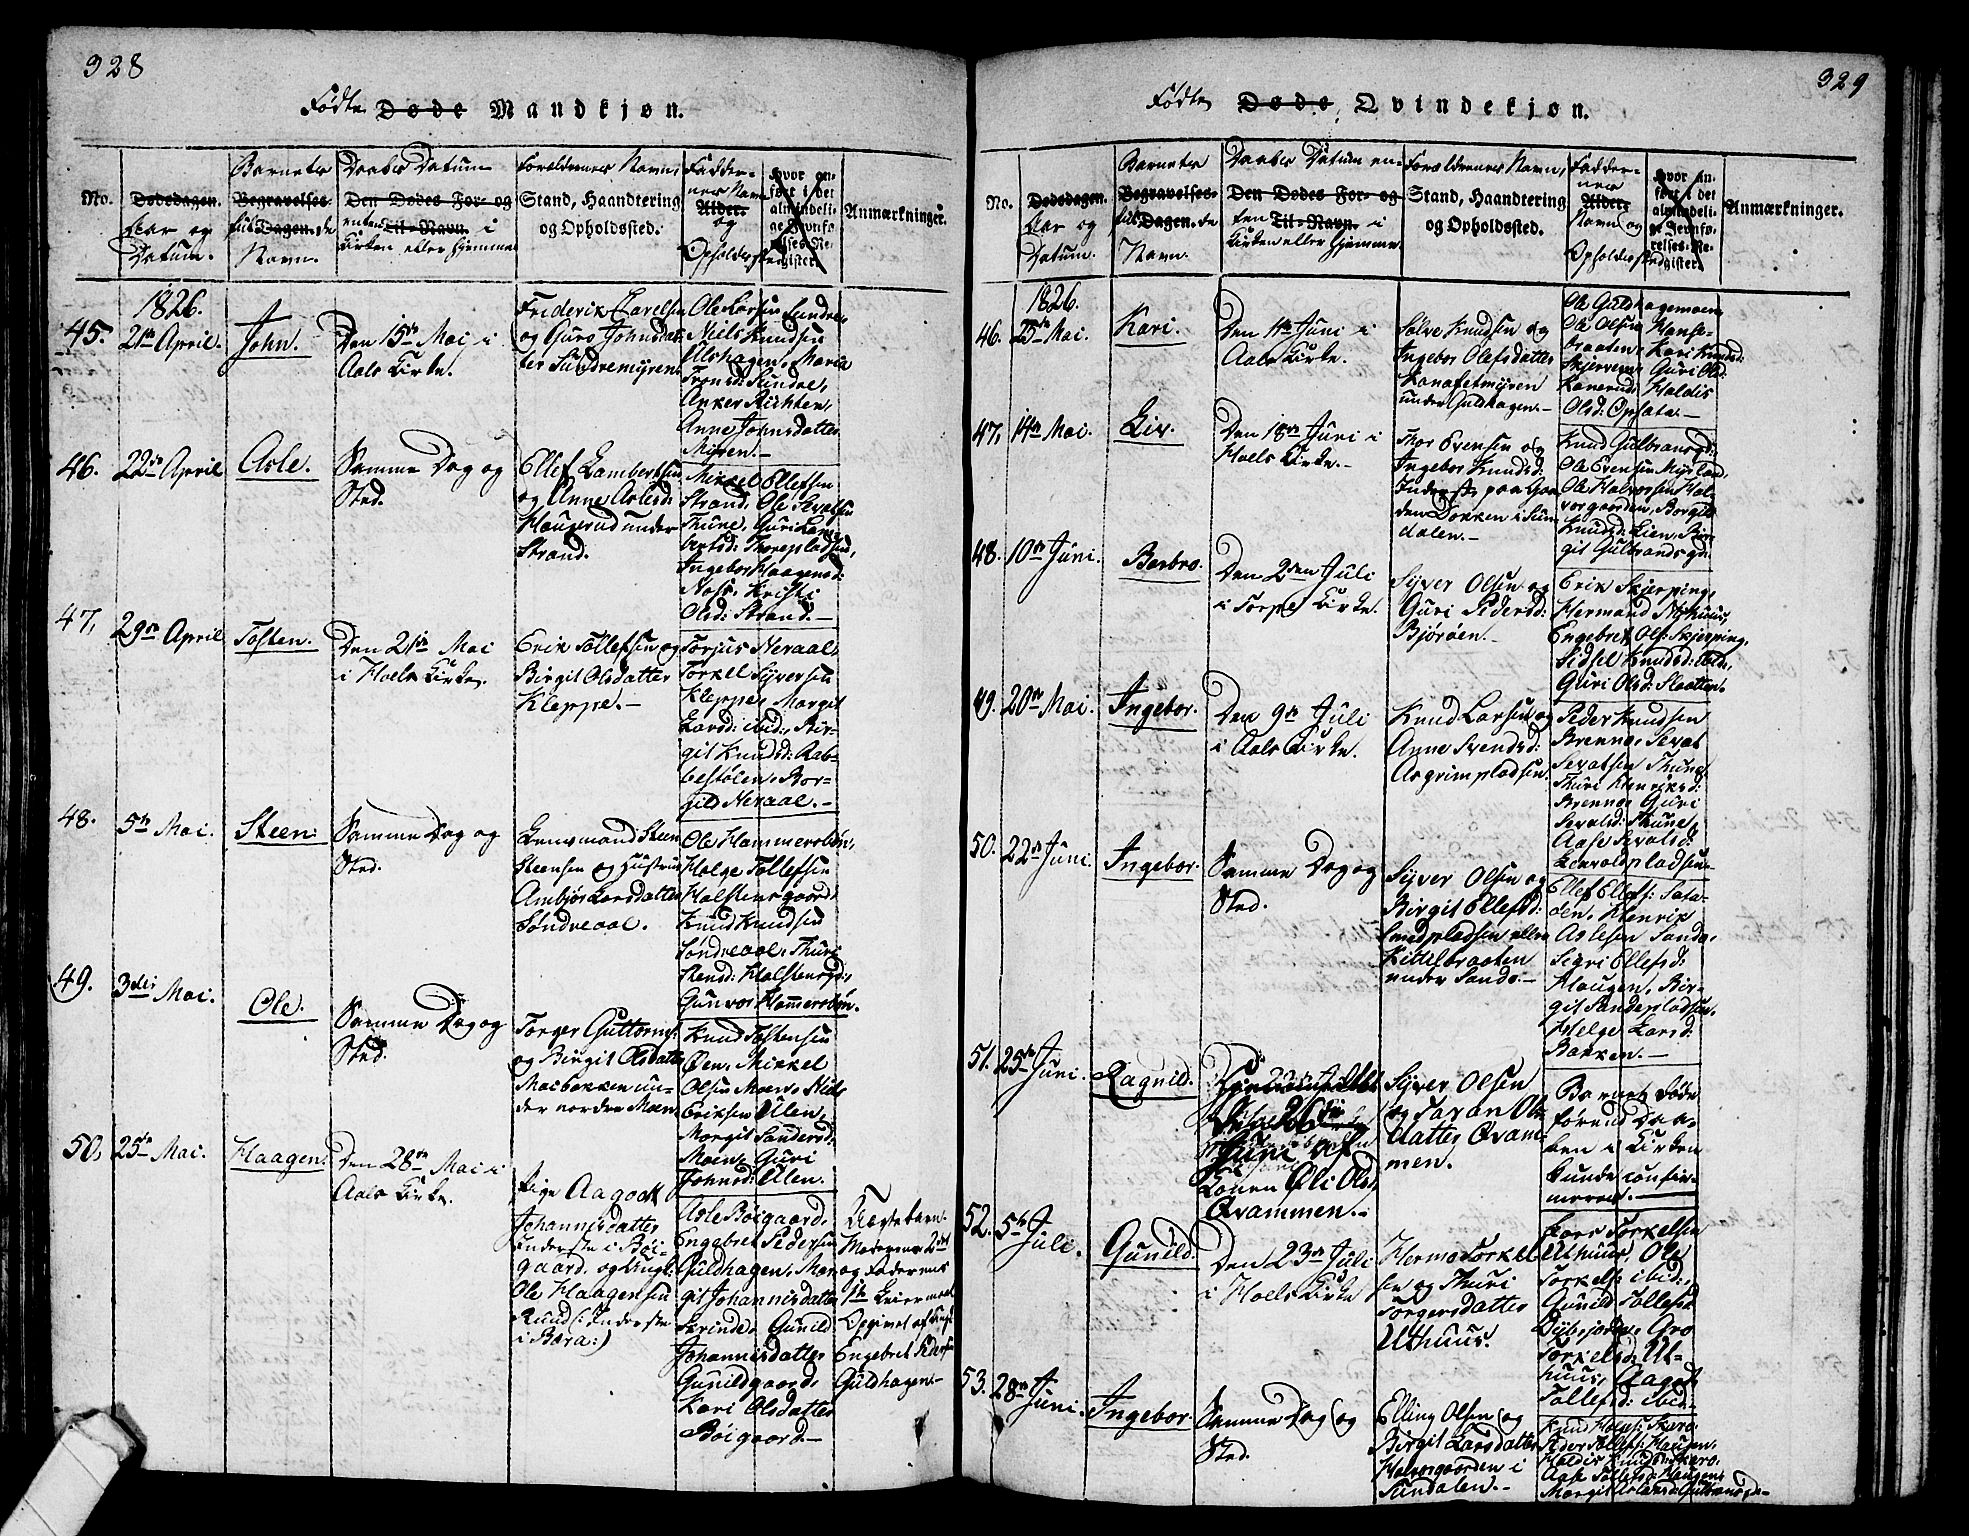 328
Fødte Døde Mandkjøn.
No.
Dødedagen.
Aar og
Datum.
Barnets
Begravelses-
Dagen.
Navn.
Daabs Datum
Den Dødes For- og
Til-Navn. i
Kirken eller Hjemme
Forældrenes Navn,
Stand, Haandtering
og Opholdssted.
Fadder-
nes Navn
Alder
og
Opholdssted
Hvor an-
ført i det
almindeli-
ge Jevnfø-
relses-Re-
gister.
Anmærkninger.
1826.
45. 21de April.
John.
Den 15de Mai i
Aals Kirke.
Friderik Carelsen
og Guro Johnsdat-
ter Sundremyren
Ole Larsen Sundre,
Niels Knudsen
Ulshagen, Marie
Tronsd: Sundre,
Anker Richten,
Anne Johnsdatter
Myren.-
46. 22de April
Asle.
Samme Dag og
Sted.
Ellef Lambertsen
og Anne Aslesd:
Haugerud under
Strand.
Mikkel Ellefsen
Strand, Ole Sevatsen
Thune, Guri Lam-
bertsd: Thorepladsen,
Ingebor Haagensd:
Noss, Kristi
Olsd: Strand.-
47, 29de April
Tosten.
Den 21de Mai
i Hoels Kirke.
Erik Tollefsen og
Birgit Olsdatter
Kleppe.-
Torjus Neraal,
Torkel Syversen
Kleppe, Margit
Larsd: ibid:, Bir-
git Knudsd: Rab-
bestølen, Bor-
gild Neraal.-
48. 5te Mai.
Steen.
Samme Dag og
Sted.
Lensmand Steen
Steensen og Hustrue
Ambjør Larsdatter
Søndreaal.
Ole Hammersbøn,
Helge Tollefsen
Holstensgaard,
Knud Knudsen
Søndreaal, Thuri
Stensd: Holstensgd:,
Gunvor Hammersbøn.
49. 3die Mai.
Ole.
Samme Dag og
Sted.
Torger Guttorms:
og Birgit Olsdatter
Maibakken un-
der nordre Moen
Knud Tostensen
Øen, Mikkel
Olsen Moen, Niels
Eriksen Ulen,
Margit Sandersd:
Moen, Guri
Johnsd: Ulen.
50, 25de Mai.
Haagen.
Den 28de Mai i
Aals Kirke.
Pige Aagodt
Johannisdatter
Inderste i Bøi-
gaard. og Ungk:
Ole Haagensen
Ruud (: Inderste
i Bera:)
Asle Bøigaard,
Engebret Pedersen
Guldhagen, Mar-
git Johannisdatter
Skrinde, Gunild
Johannisdatter
Gunildgaard,
Kari Olsdatter
Bøigaard.-
Uægtebarn.
Moderens 2det
og Faderens
1te Leiermaal
Opgivet af
Engebret Peders:
Guldhagen.-
329
Fødte Døde Qvindekjøn.
No.
Dødedagen.
Aar og
Datum.
Barnets
Begravelses-
Dagen.
Navn.
Daabs Datum en-
Den Dødes For- og
ten Til-Navn. i
Kirken eller Hjemme
Forældrenes Navn,
Stand, Haandtering
og Opholdssted.
Fadder-
nes
Alder
Navn og
Opholdssted
Hvor an-
ført i det
almindeli-
ge Jevnfø-
relses-Re-
gister.
Anmærkninger.
1826.
46. 25de Mai.
Kari.
Den 11te Juni i
Aals Kirke.
Solve Knudsen og
Ingebor Olefsdatter
Kanafetmyren
under Guldhagen.-
Ole Guldhagemoen
Ole Olsen Hanse-
braaten, Kari Knudsd:
Skjerven, Guri Olsd:
Kanerud, Haldis
Olsd: Opsata.-
47, 14de Mai.
Liv.
Den 18de Juni i
Hoels Kirke.-
Thor Evensen og
Ingebor Knudsd:
Inderste paa Gaar
den Dokken i Sun
dalen.-
Knud Gulbrandsgd:
Ole Evensen Myrland,
Ole Halvorsen Hal-
vorgaarden, Borgild
Knudsd: Lien, Bir-
git Gulbrandsgd:
48. 10de Juni.
Barbro.
Den 2den Juli
i Torpe Kirke.
Syver Olsen og
Guri Pedersd:
Bjøröen.-
Erik Skjerping,
Hermand Nyhuus,
Engebret Ols: Skjerping,
Sidsel Knudsd: ibid:,
Guri Olsd: Slaatten.
49. 20de Mai.
Ingebor.
Den 9de Juli
i Aals Kirke.
Knud Larsen og
Anne Svendsd:
Asgrimpladsen.
Peder Knudsen
Brenno, Sevat
Sevatsen Thune,
Thuri Henriksd:
Brenno, Guri
Sevatsd: Thune,
Aase Sevatsd:
50. 22de Juni.
Ingebor.
Samme Dag og
Sted.
Syver Olsen og
Birgit Ellefsd:
Sandpladsen eller
Kittelbraaten
under Sando.-
Ellef Ellefs: Sata-
øen, Henrik
Aslesen Sando,
Sigri Ellefsd:
Haugen, Bir-
git Sandepladsen,
Helge Larsd:
Bakken.-
51. 25de Juni.
Ragnild.
Juni af
Konen Øli Olsd:
Qvammen.-
Syver Olsen
og Taran Ols-
datter Qvam-
men.
Barnet døde
førend Daa-
ben i Kirken
kunde confir-
meres.-
52. 5te Juli.
Gunild.
Den 23de Juli
i Hoels Kirke
Hermo Torkel
sen og Thuri
Torgersdatter
Uthuus.
Lars Torkelsen
Uthuus, Ole
Torkels: ibid:,
Gunild Tollefsd:
Gro
Torkelsd: Ut-
huus, Aagodt
Tollefsd: ibid:
53. 28de Juni.
Ingebor.
Samme Dag og
Sted.
Elling Olsen og
Birgit Larsdatter
Halvorgaarden i
Sundalen.-
Knud Holgs: Skuro,
Peder Tollefs: Haugen,
Haldis Knudsd: Skuro,
Aase Tollefsd: Haugen,
Margit Aslesd: Gulbrandsgd:-